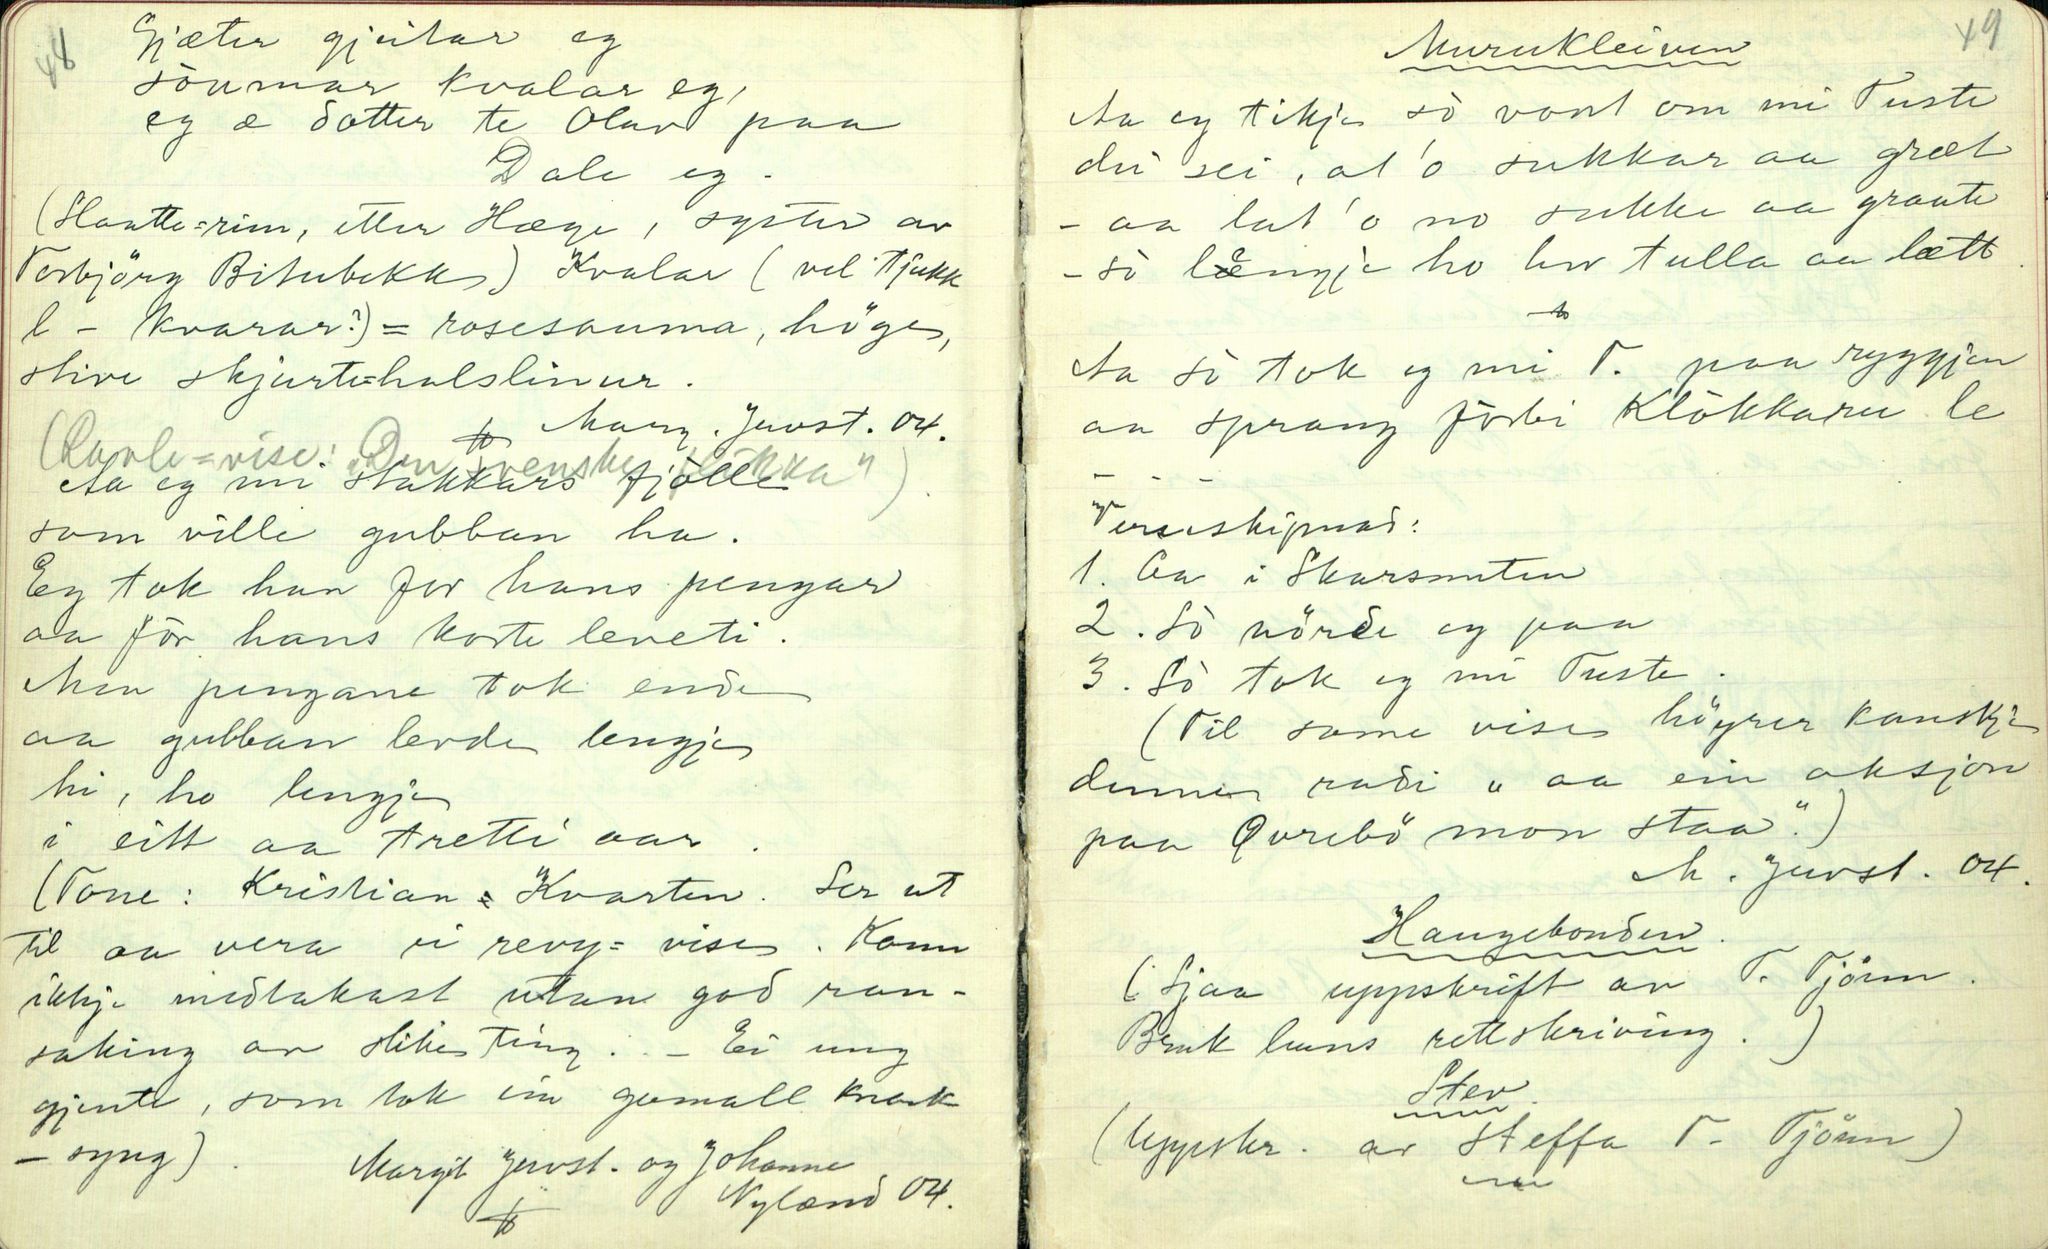 48
Gjæter gjeitar eg
sòummar kvalar eg,
eg æ dotter te Olav paa
Dale eg.
(Slaatte=rim, etter Hæge, syster av
Torbjörg Bitubekk) Kvalar (vel tjukk
l - kvarar?) = rosesauma, höge,
stive skjurte=halslinur.
Marg. Juvst. 04.
(Ravle=vise: "Den svenske flikka")
Aa eg mi stakkars fjòlle
som ville gubban ha.
Eg tok han for hans pengar
aa för hans korte leveti.
Men pengane tok ende
aa gubban levde lengje
hi, ho lengje
i eitt aa tretti aar.
(Tone: Kristian = Kvarten. Ser ut
til aa vera ei revy=vise. Kann
ikkje medtakast utan god ran-
saking av slike ting. - Ei ung
gjente, som tok ein gamall knark
- syng).
Margit Juvst. og Johanne
Nylænd 04.
49
Murukleiven
Aa eg tikje sò vont om mi Tuste
du sei, at 'o sukkar aa græt
- aa lat 'o no sukke aa graate
- sò længje ho hev tulla aa lætt.
Aa sò tok eg mi T. paa ryggjen
aa sprang förbi Klòkkaru le
- - -
Verseskipnad:
1. Aa i Skarsnuten
2. Sò nörde eg paa
3. Sò tok eg mi Tuste.
(Til same vise höyrer kanskje
denne radi "aa ein aksjon
paa Øvrebö mon staa".)
M. Juvst. 04.
Haugebonden.
(Sjaa uppskrift av T. Tjönn.
Bruk hans rettskriving.)
Stev.
(Uppskr. av Steffa T. Tjönn)